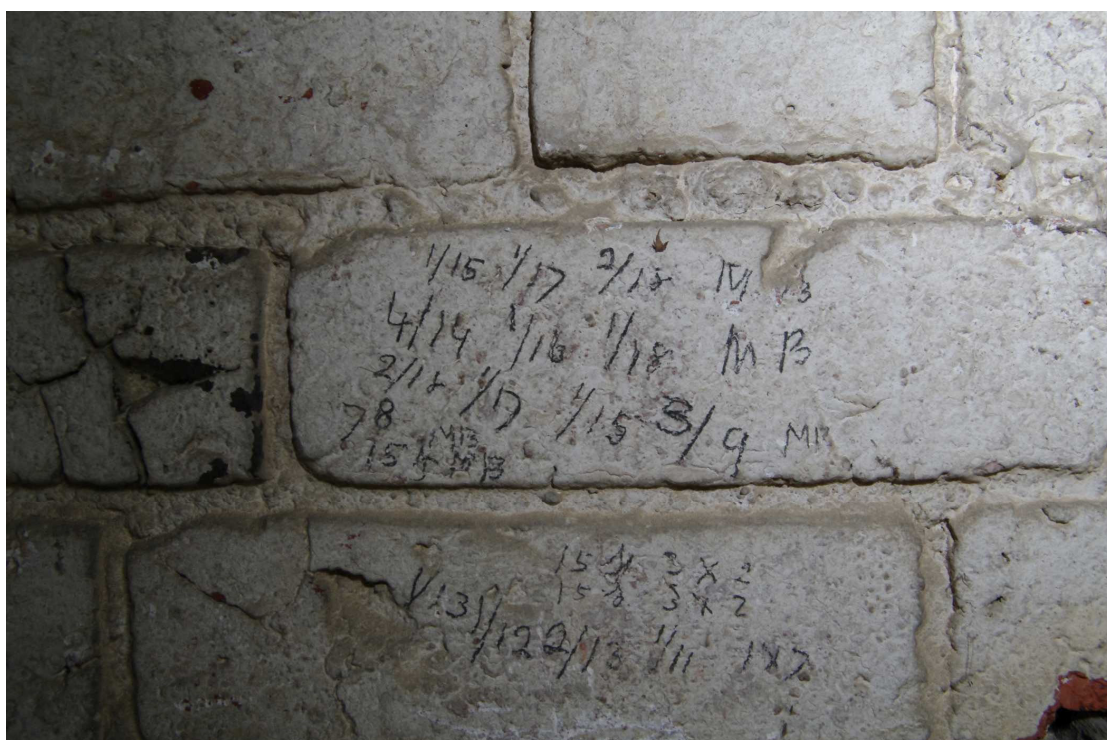 1/15 1/17 2/18 M B
4/14 1/16 1/18 M B
2/18 1/17 1/15 3/9 MB
78 MB
15 MB
15 3 x 2
15 8 3 x 2
1/13
1/12 2/13 1/11 1x7